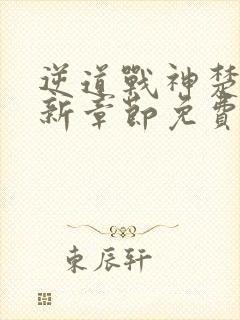 逆道戰神楚
新章節免費
東辰轩